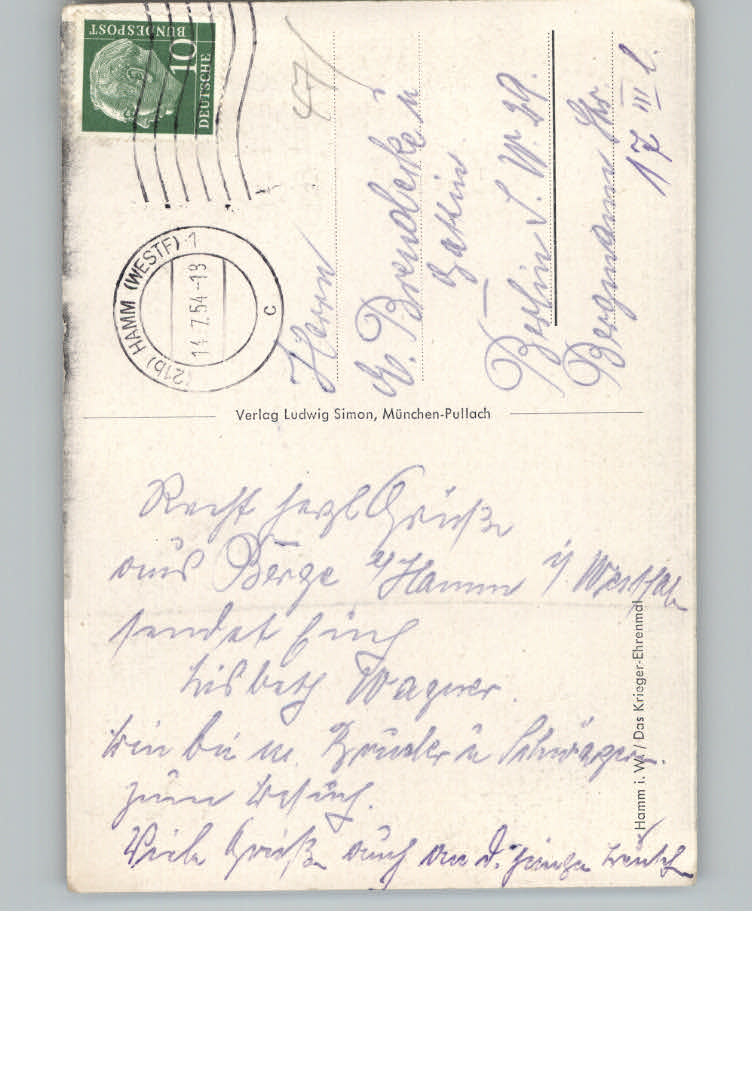 DEUTSCHE
BUNDESPOST
10
(21b) HAMM (WESTF) 1
14.7.54-18
c
47/
Herrn
W. Brendecke u
Gattin
Berlin S.W. 29.
Bergmann Str
17 III l.
Verlag Ludwig Simon, München-Pullach
Recht herzl Grüße
aus Berge b/Hamm i/Westfal
sendet Euch
Lisbeth Wagner.
bin bei m. Bruder u Schwägerin.
zum Besuch.
Viele Grüße auch an d. jungen Leutch
Hamm i. W. / Das Krieger-Ehrenmal